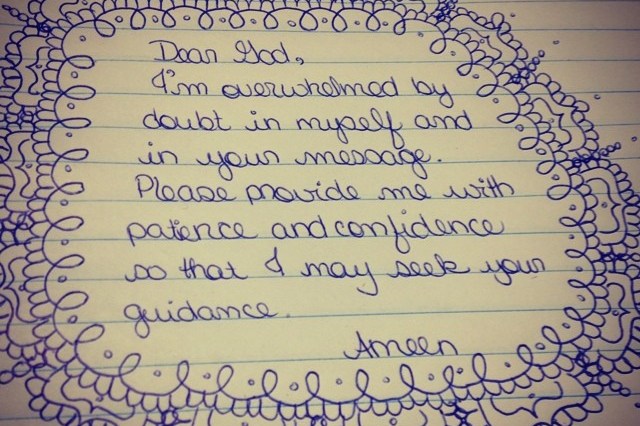 Dear God,
I'm overwhelmed by
doubt in myself and
in your message.
Please provide me with
patience and confidence
so that I may seek your
guidance.
Ameen